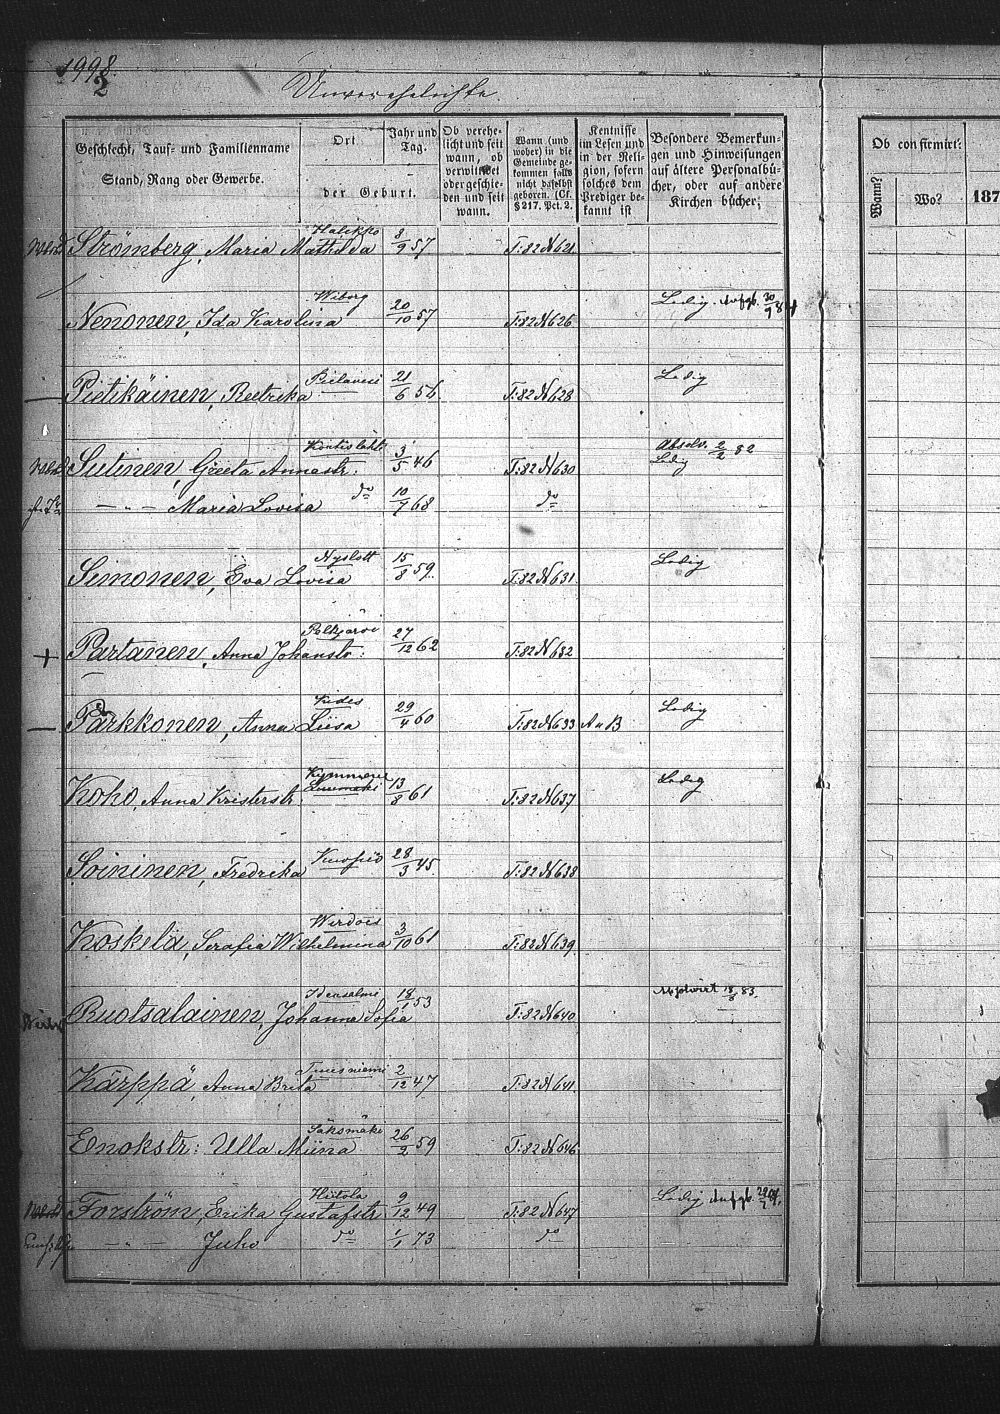 1998.
2
Unverehelichte.
Geschlecht, Tauf- und Familienname
Stand, Rang oder Gewerbe.
Ort
der Geburt.
Jahr und Tag.
Ob verehelicht und seit wann, ob verwittwet oder geschieden und seit wann.
Wann (und woher) in die Gemeinde gekommen falls nicht daselbst geboren. (Cf. § 217. Pct. 2.
Kentnisse im Lesen und in der Religion, sofern solches dem Prediger bekannt ist
Besondere Bemerkungen und Hinweisungen auf ältere Personalbücher, oder auf andere Kirchenbücher;
Ob confirmirt:
Wann?
Wo?
187
Strömberg, Maria Mathilda Halikko 8/9 57 T:82 N624
Nenonen, Ida Karolina Wiborg 20/10 57 T:82 N626 Ledig. Aufgb. 30/9 84
Pietikäinen, Reetrika Pielavesi 21/6 56 T:82 N628 Ledig
Sutinen, Greeta Annastr: Kontiolahti 3/5 46 T:82 N630 Absolv. 2/2 82 Ledig
— " — Maria Lovisa do 10/7 68 do
Simonen, Eva Lovisa Nyslott 15/8 59 T:82 N631 Ledig
+ Partanen, Anna Johanstr: Pälkjärvi 27/12 62 T:82 N632
— Pärkkonen, Anna Liisa Kides 29/4 60 T:82 N633 A u B Ledig
Koho, Anna Kristerstr: Kymmene 13/8 61 T:82 N637 Ledig
Soininen, Fredrika Kuopio 28/3 45 T:82 N638
Koskela, Serafia Wilhelmina Wirdois 3/10 61 T:82 N639
Ruotsalainen, Johanna Sofia Idensalmi 18/1 53 T:82 N640 18/8 83.
Kärppä, Anna Brita Tuusniemi 2/12 47 T:82 N641
Enokstr: Ulla Miina Säksmäki 26/2 59 T:82 N646
Forström, Erika Gustafstr: Hiitola 9/12 49 T:82 N647 Ledig Aufgb.
— " — Juho do 1/1 73 do